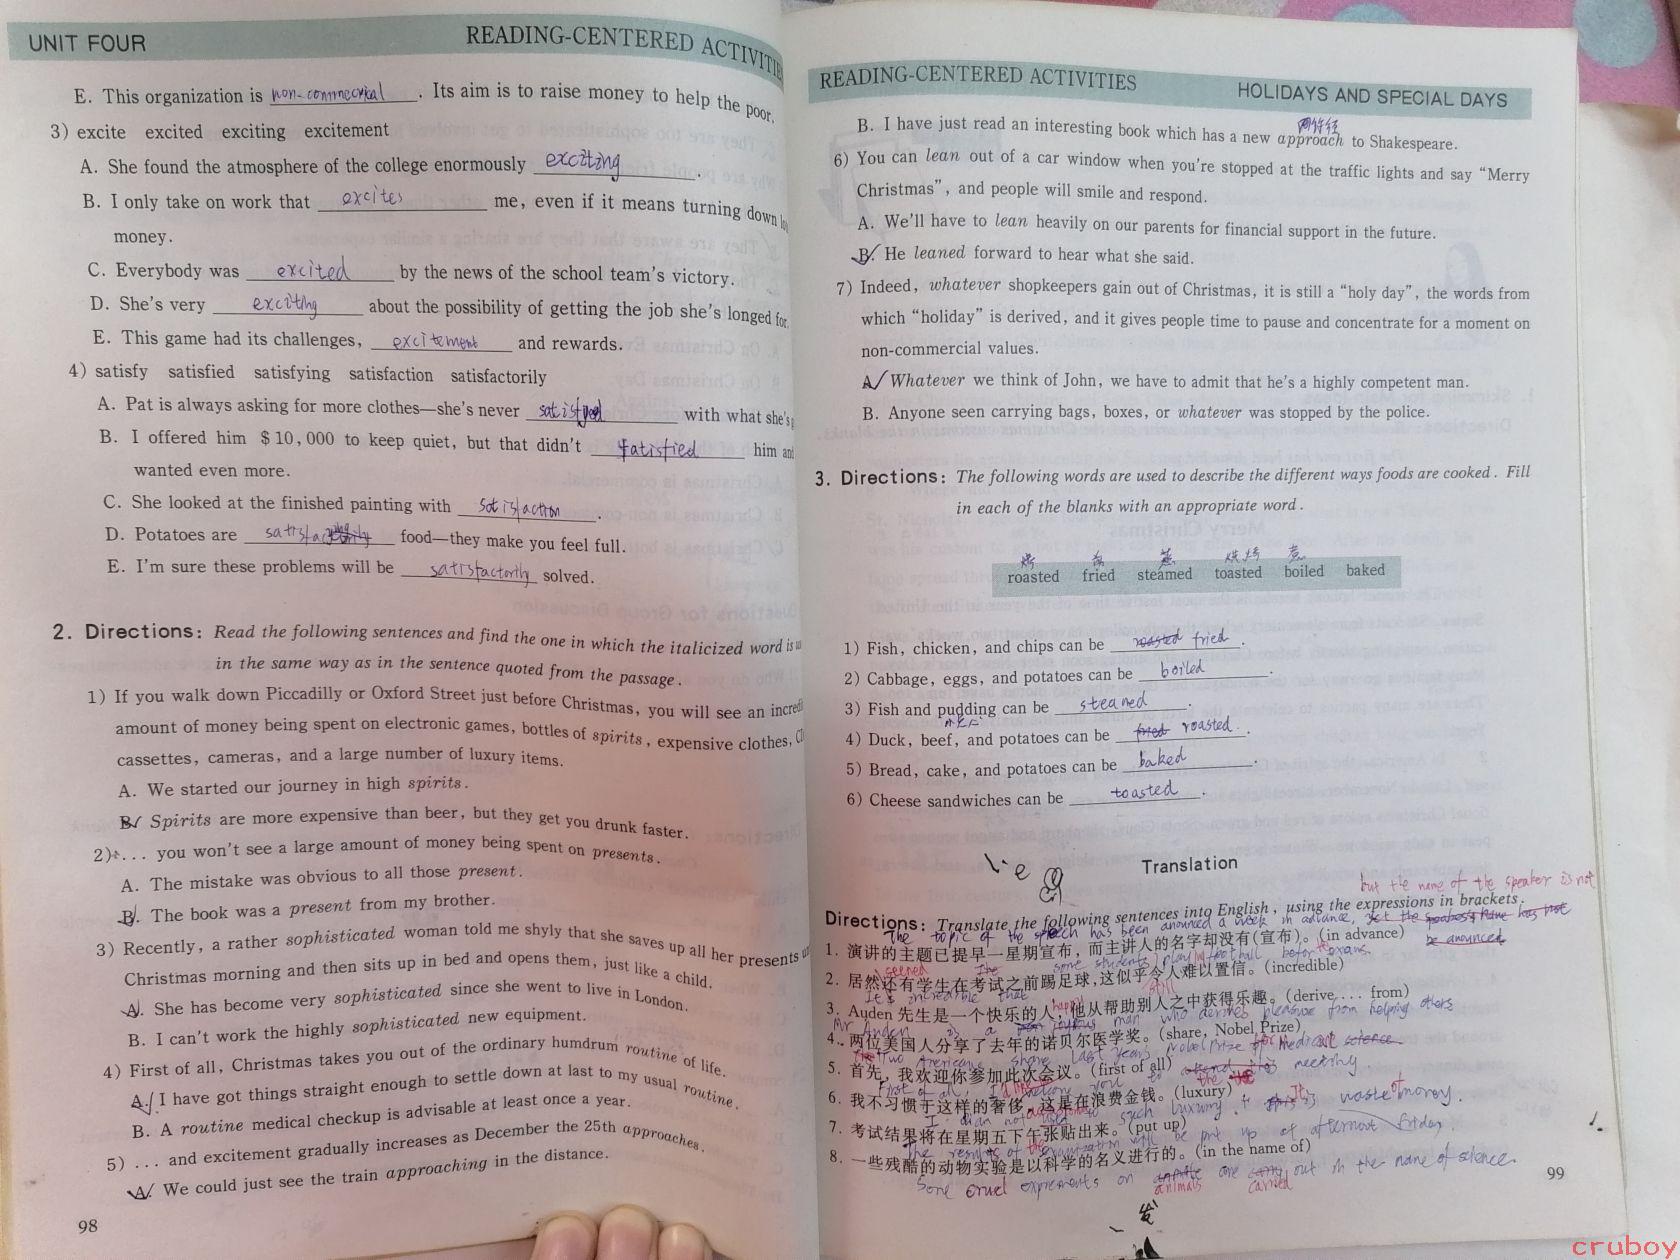 UNIT FOUR
READING-CENTERED ACTIVITIES
E. This organization is non-commecrical. Its aim is to raise money to help the poor.
3) excite excited exciting excitement
A. She found the atmosphere of the college enormously exciting.
B. I only take on work that excites me, even if it means turning down
money.
C. Everybody was excited by the news of the school team's victory.
D. She's very exciting about the possibility of getting the job she's longed for.
E. This game had its challenges, excitement and rewards.
4) satisfy satisfied satisfying satisfaction satisfactorily
A. Pat is always asking for more clothes—she's never satisfied with what she's
B. I offered him $10,000 to keep quiet, but that didn't satisfied him and
wanted even more.
C. She looked at the finished painting with satisfaction.
D. Potatoes are food—they make you feel full.
E. I'm sure these problems will be satisfactorily solved.
2. Directions: Read the following sentences and find the one in which the italicized word is
in the same way as in the sentence quoted from the passage.
1) If you walk down Piccadilly or Oxford Street just before Christmas, you will see an
amount of money being spent on electronic games, bottles of spirits, expensive clothes,
cassettes, cameras, and a large number of luxury items.
A. We started our journey in high spirits.
B. Spirits are more expensive than beer, but they get you drunk faster.
2) ... you won't see a large amount of money being spent on presents.
A. The mistake was obvious to all those present.
B. The book was a present from my brother.
3) Recently, a rather sophisticated woman told me shyly that she saves up all her presents
Christmas morning and then sits up in bed and opens them, just like a child.
A. She has become very sophisticated since she went to live in London.
B. I can't work the highly sophisticated new equipment.
4) First of all, Christmas takes you out of the ordinary humdrum routine of life.
A. I have got things straight enough to settle down at last to my usual routine.
B. A routine medical checkup is advisable at least once a year.
5) ... and excitement gradually increases as December the 25th approaches.
A. We could just see the train approaching in the distance.
98
READING-CENTERED ACTIVITIES
HOLIDAYS AND SPECIAL DAYS
B. I have just read an interesting book which has a new approach to Shakespeare.
6) You can lean out of a car window when you're stopped at the traffic lights and say "Merry
Christmas", and people will smile and respond.
A. We'll have to lean heavily on our parents for financial support in the future.
B. He leaned forward to hear what she said.
7) Indeed, whatever shopkeepers gain out of Christmas, it is still a "holy day", the words from
which "holiday" is derived, and it gives people time to pause and concentrate for a moment on
non-commercial values.
A. Whatever we think of John, we have to admit that he's a highly competent man.
B. Anyone seen carrying bags, boxes, or whatever was stopped by the police.
3. Directions: The following words are used to describe the different ways foods are cooked. Fill
in each of the blanks with an appropriate word.
烤 蒸 烘烤 煮
roasted fried steamed toasted boiled baked
1) Fish, chicken, and chips can be roasted fried.
2) Cabbage, eggs, and potatoes can be boiled.
3) Fish and pudding can be steamed.
4) Duck, beef, and potatoes can be fried roasted.
5) Bread, cake, and potatoes can be baked.
6) Cheese sandwiches can be toasted.
Translation
but the name of the speaker is not
Directions: Translate the following sentences into English, using the expressions in brackets.
The topic of the speech has been anounced a week in advance,
be anounced
1. 演讲的主题已提早一星期宣布，而主讲人的名字却没有(宣布)。(in advance)
some students play football before exams.
2. 居然还有学生在考试之前踢足球,这似乎令人难以置信。(incredible)
It's incredible that
3. Auden 先生是一个快乐的人，他从帮助别人之中获得乐趣。(derive ... from)
Mr Auden is a man who derives pleasure from helping others
4. 两位美国人分享了去年的诺贝尔医学奖。(share, Nobel Prize)
Two Americans share last year's Nobel Prize
5. 首先，我欢迎你参加此次会议。(first of all)
First of all, I welcome you to meeting.
6. 我不习惯于这样的奢侈，这是在浪费金钱。(luxury)
I such luxury. waste of money.
7. 考试结果将在星期五下午张贴出来。(put up)
The results of the will be put up of afternoon Friday.
8. 一些残酷的动物实验是以科学的名义进行的。(in the name of)
Some cruel expriements on animals are carried out in the name of science.
99
cruboy